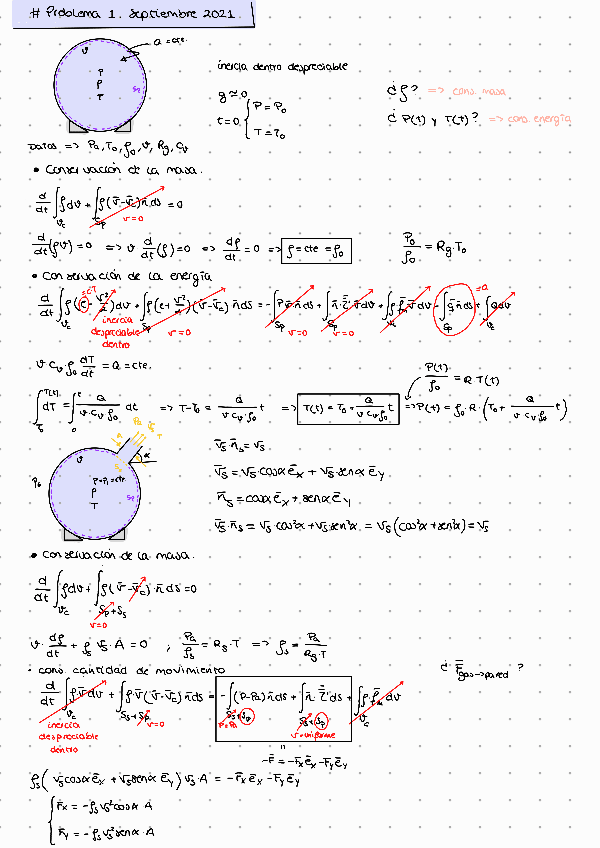 # Problema 1. Septiembre 2021.
Q = cte.
V
P
ρ
T
Sp
inercia dentro despreciable
g ≈ 0
t=0 { P = P₀
T = T₀
¿ ρ? => cons. masa
¿ P(t) y T(t)? => cons. energía
Datos => Pa, T₀, ρ₀, V, Rg, Cv
• Conservación de la masa.
d/dt ∫_Vc ρ dV + ∫_Sp ρ(v̄-v̄c)·n̄ ds = 0
v=0
d/dt(ρV) = 0 => V d/dt(ρ) = 0 => dρ/dt = 0 => ρ = cte = ρ₀
P₀/ρ₀ = Rg·T₀
• Conservación de la energía
d/dt ∫_Vc ρ(e + v²/2) dV + ∫_Sp ρ(e + v²/2)(v̄-v̄c)·n̄ ds = -∫_Sp P v̄·n̄ ds + ∫_Sp n̄·τ̄'·v̄ ds + ∫_Vc ρ f̄m·v̄ dV - ∫_Sp q̄·n̄ ds + ∫_Vc Q dV
=cT
=Q
inercia
despreciable
dentro
v=0
v=0
v=0
V Cv ρ₀ dT/dt = Q = cte.
∫_T₀^T(t) dT = ∫_0^t Q/(V·Cv·ρ₀) dt => T-T₀ = Q/(V Cv ρ₀) t => T(t) = T₀ + Q/(V Cv ρ₀) t => P(t) = ρ₀·R·(T₀ + Q/(V·Cv·ρ₀) t)
P(t)/ρ₀ = R T(t)
P₀
V
P=P₁=cte.
ρ
T
Sp
α
v̄s·n̄s = vs
v̄s = vs·cosα ēx + vs·senα ēy
n̄s = cosα ēx + senα ēy
v̄s·n̄s = vs cos²α + vs sen²α = vs(cos²α + sen²α) = vs
• Conservación de la masa.
d/dt ∫_Vc ρ dV + ∫_Sp+Ss ρ(v̄-v̄c)·n̄ ds = 0
v=0
V·dρ/dt + ρs vs·A = 0 ; Pa/ρs = Rg·T => ρs = Pa/(Rg·T)
· cons. cantidad de movimiento
¿ F̄ gas→pared ?
d/dt ∫_Vc ρ v̄ dV + ∫_Ss+Sp ρ·v̄(v̄-v̄c)·n̄ ds = -∫_Ss+Sp (P-Pa) n̄ ds + ∫_Ss+Sp n̄·τ̄' ds + ∫_Vc ρ·f̄m dV
inercia
despreciable
dentro
v=0
P=Pa
v=uniforme
-F̄ = -Fx ēx - Fy ēy
ρs(vs cosα ēx + vs senα ēy) vs·A = -Fx ēx - Fy ēy
{ Fx = -ρs vs² cosα·A
Fy = -ρs vs² senα·A